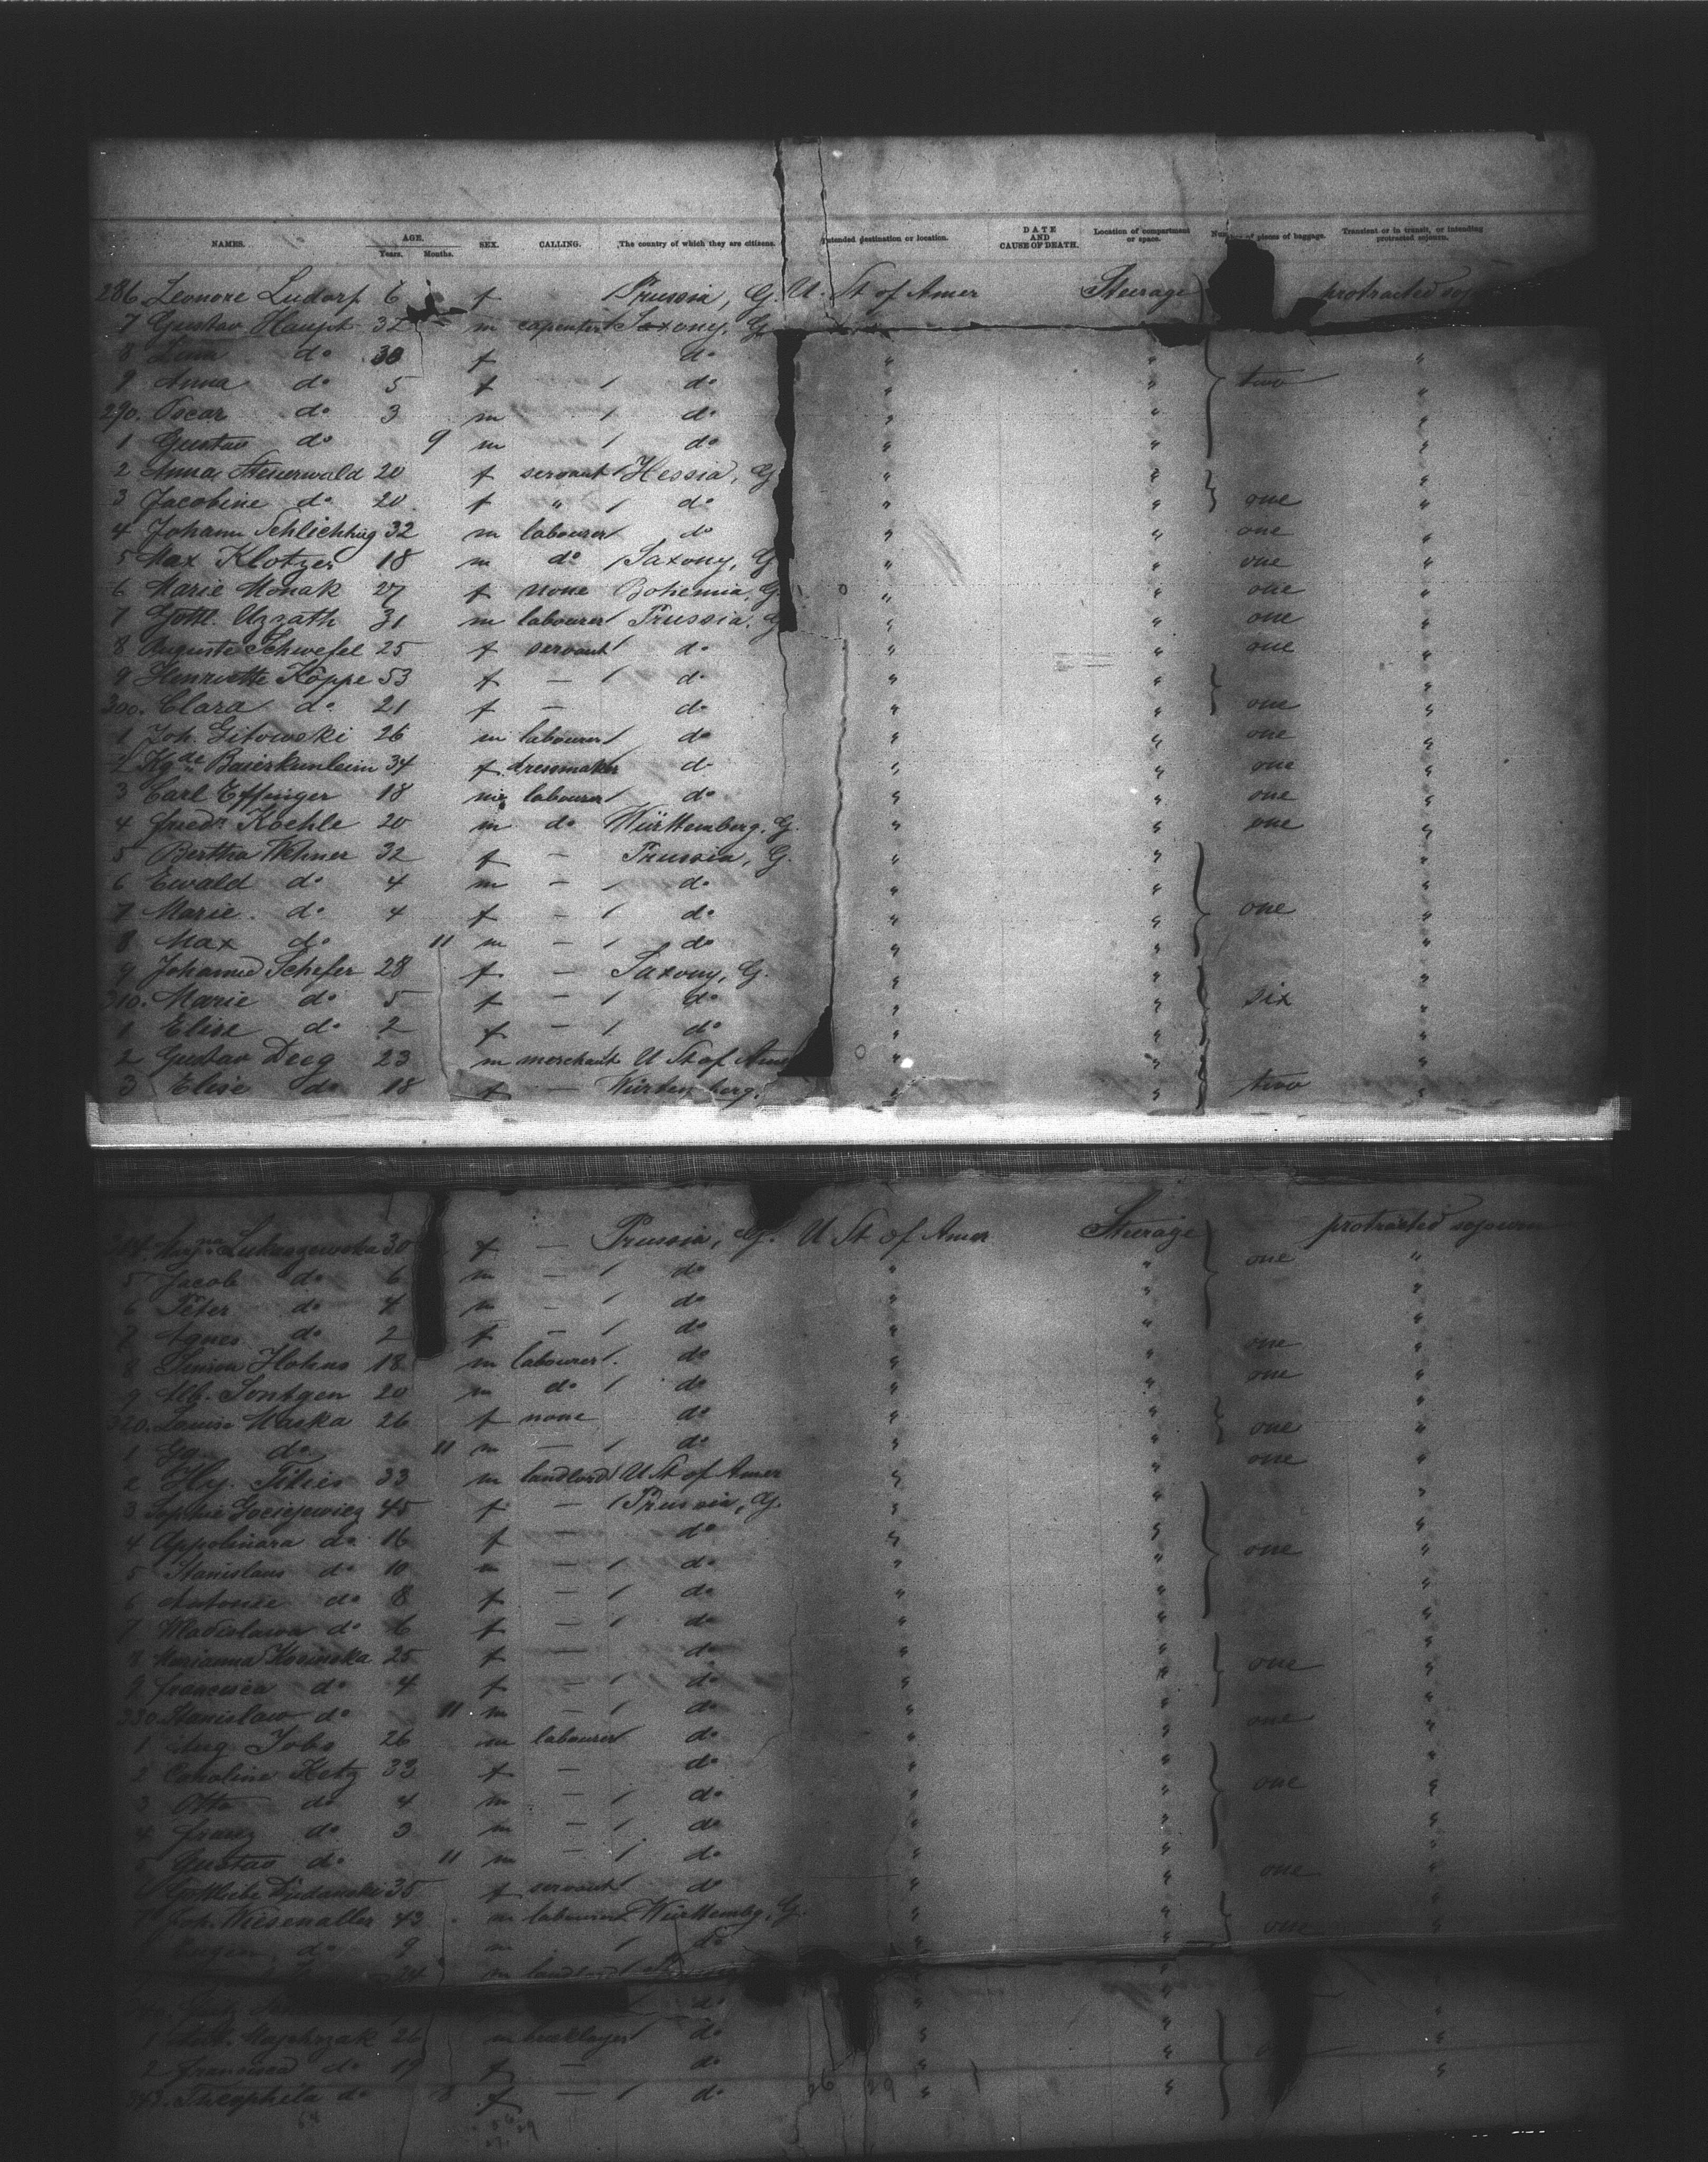 NAMES. AGE. Years. Months. SEX. CALLING. The country of which they are citizens. Intended destination or location. DATE AND CAUSE OF DEATH. Location of compartment or space. Number of pieces of baggage. Transient or in transit, or intending protracted sojourn.
286. Leonore Ludorf 6 f Prussia, G. U. St of Amer Steerage protracted
7 Gustav Haupt 32 m capenter Saxony, G
8 Lina do 30 f do " " "
9 Anna do 5 f / do " " two "
290. Oscar do 3 m / do " " "
1 Gustav do 9 m / do " " "
2 Anna Steuerwald 20 f servant Hessia, G " " "
3 Jacobine do 20 f " / do " " one "
4 Johann Schlichting 32 m labourer do " " one "
5 Max Klotzer 18 m do / Saxony, G " " one "
6 Marie Monak 27 f none Bohemia, G " " one "
7 Gottl. Uzzath 31 m labourer / Prussia, G " " one "
8 Auguste Schwefel 25 f servant / do " " one "
9 Henriette Koppe 53 f — / do " " "
300. Clara do 21 f — do " " one "
1 Joh. Gitowski 26 m labourer / do " " one "
2 Kgde Baierkunlein 34 f dressmaker do " " one "
3 Carl Effinger 18 m labourer / do " " one "
4 Friedr Koehle 20 m do Württemberg, G. " " one "
5 Bertha Wehner 32 f — Prussia, G. " " "
6 Ewald do 4 m — / do " " "
7 Marie do 4 f — / do " " one "
8 Max do 11 m — / do " " "
9 Johanne Schefer 28 f — Saxony, G. " " "
310. Marie do 5 f — / do " " six "
1 Elise do 2 f — / do " " "
2 Gustav Deeg 23 m merchant U St of Amer " " "
3 Elise do 18 f — Würtemberg. " " two "
Lukaszewska 30 f — Prussia, G. U St of Amer Steerage protracted sojourn
5 Jacob do 6 m — / do " " one "
6 Peter do 4 m — / do " " "
7 Agnes do 2 f — / do " " "
8 18 m labourer /. do " " one "
9 Alb. Sontgen 20 m do / do " " one "
320. Louise Maska 26 f none do " " "
1 Gg. do 11 m — / do " " one "
2 Hy. 33 m landlord / U St of Amer " " one "
3 Sophie Gociejewicz 45 f — / Prussia, G. " " "
4 Appolinara do 16 f — do " " "
5 Stanislaus do 10 m — / do " " one "
6 Antonie do 8 f — / do " " "
7 Wladislawa do 6 f — / do " " "
8 Marianna Kosinska 25 f — do " " "
9 Francisca do 4 f — / do " " one "
330 Stanislaw do 11 m — / do " " "
1 Aug Jobs 26 m labourer / do " " one "
2 Caroline Ketz 33 f — do " " "
3 Otto do 4 m — / do " " one "
4 Franz do 3 m — / do " " "
5 Gustav do 11 m — / do " " "
Gottliebe 35 f servant / do " " one "
7 Joh. Wiesenaller 43 m labourer Württembg, G. " " "
Eugen do 9 m / do " " one "
24 m landlord /
do " "
1 Majchrzak 26 m bricklayer / do " " "
2 Francisca do 19 f — do " " "
343. Theophila do 8 f — / do " " "
26 29